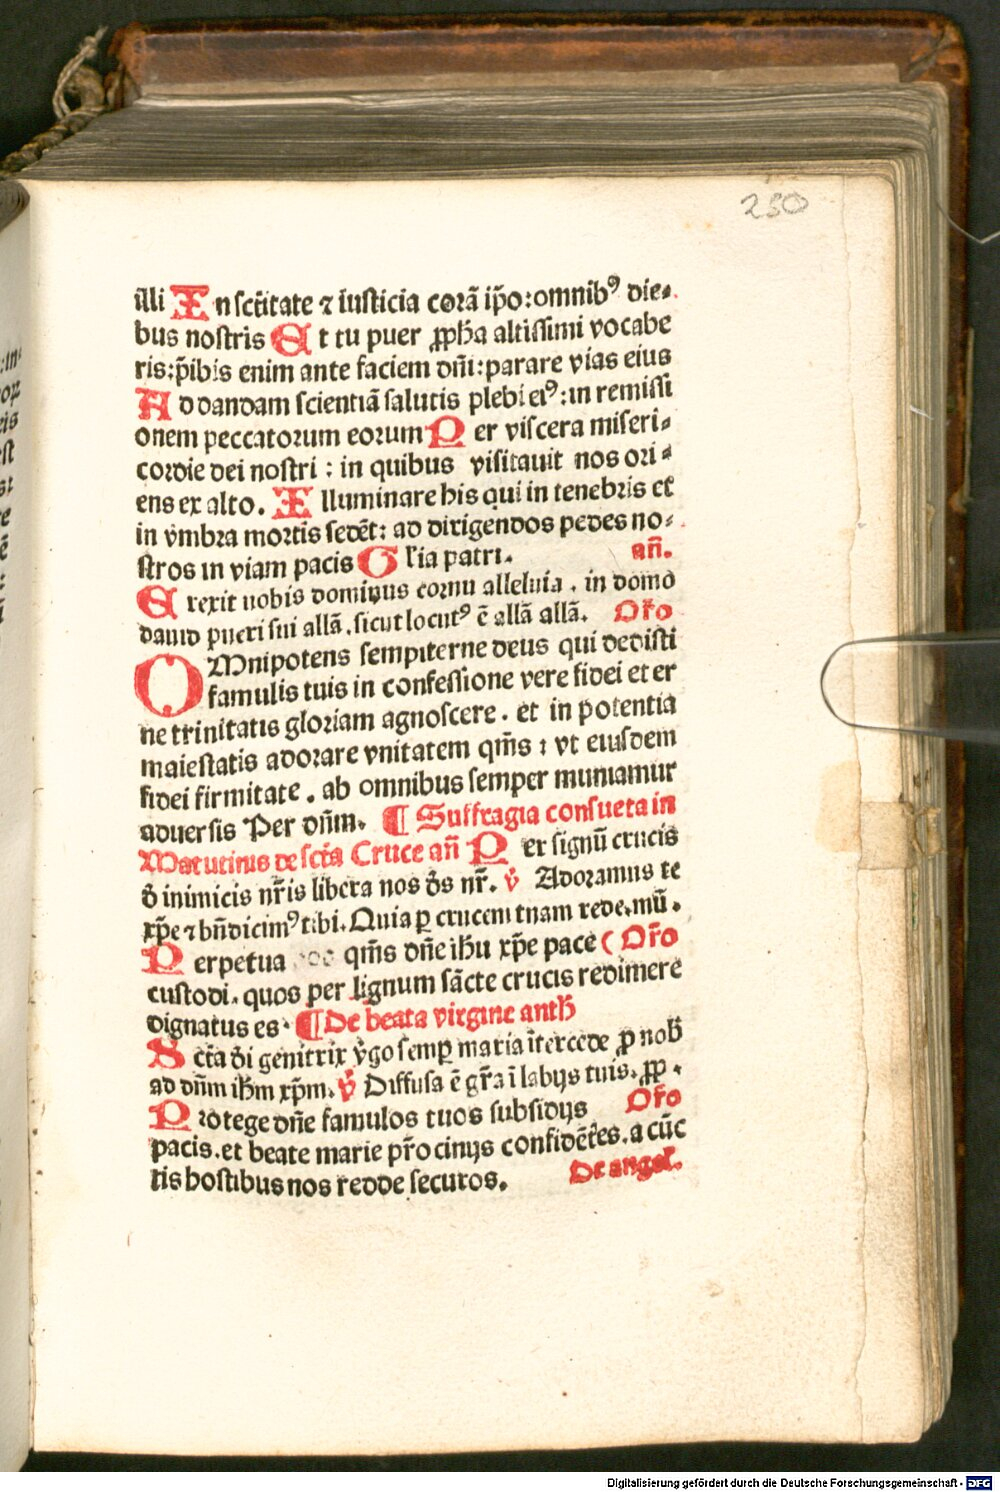 250
illi In sct̃itate ⁊ iusticia corã ip̃o: omnibꝰ die⸗
bus nostris Et tu puer ꝓph̃a altissimi vocabe
ris: p̃ibis enim ante faciem dñi: parare vias eius
Ad dandam scientiã salutis plebi eiꝰ: in remissi
onem peccatorum eorum Per viscera miseri⸗
cordie dei nostri: in quibus visitauit nos ori⸗
ens ex alto. Illuminare his qui in tenebris et
in vmbra mortis sedẽt: ad dirigendos pedes no⸗
stros in viam pacis Gl'ia patri. añ.
Erexit nobis dominus cornu alleluia. in domo
dauid pueri sui allã. sicut locutꝰ ẽ allã allã. Or̃o
OMnipotens sempiterne deus qui dedisti
famulis tuis in confessione vere fidei et er
ne trinitatis gloriam agnoscere. et in potentia
maiestatis adorare vnitatem qm̃s: vt eiusdem
fidei firmitate. ab omnibus semper muniamur
aduersis Per dñm. ¶ Suffragia consueta in
Matutinis de sct̃a Cruce añ Per signũ crucis
đ inimicis nr̃is libera nos đs nr̃. ꝟ Adoramus te
xp̃e ⁊ bñdicimꝰ tibi. Quia ꝑ crucem tuam rede. mũ.
Perpetua qm̃s dñe ih̃u xp̃e pace ( Or̃o
custodi. quos per lignum sãcte crucis redimere
dignatus es. ¶ De beata virgine anth̃
Sct̃a đi genitrix v̾go semꝑ maria ĩtercede ꝓ nob̃
ad dñm ih̃m xp̃m. ꝟ Diffusa ẽ gr̃a ĩ labijs tuis. ꝓꝑ.
Protege dñe famulos tuos subsidijs Or̃o
pacis. et beate marie pr̃ocinijs confidẽtes. a cũc
tis hostibus nos redde securos. De angel.
Digitalisierung gefördert durch die Deutsche Forschungsgemeinschaft - DFG